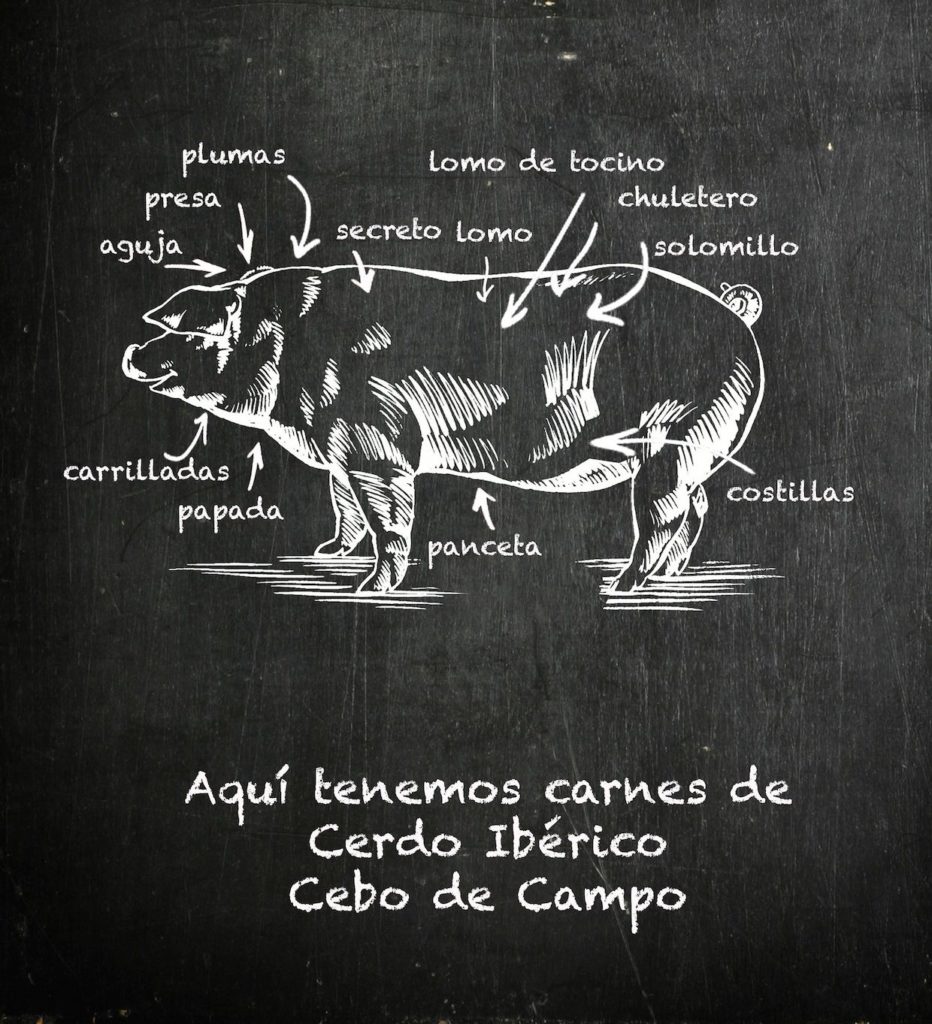 plumas
lomo de tocino
presa
chuletero
aguja
secreto
lomo
solomillo
carrilladas
papada
panceta
costillas
Aquí tenemos carnes de
Cerdo Ibérico
Cebo de Campo